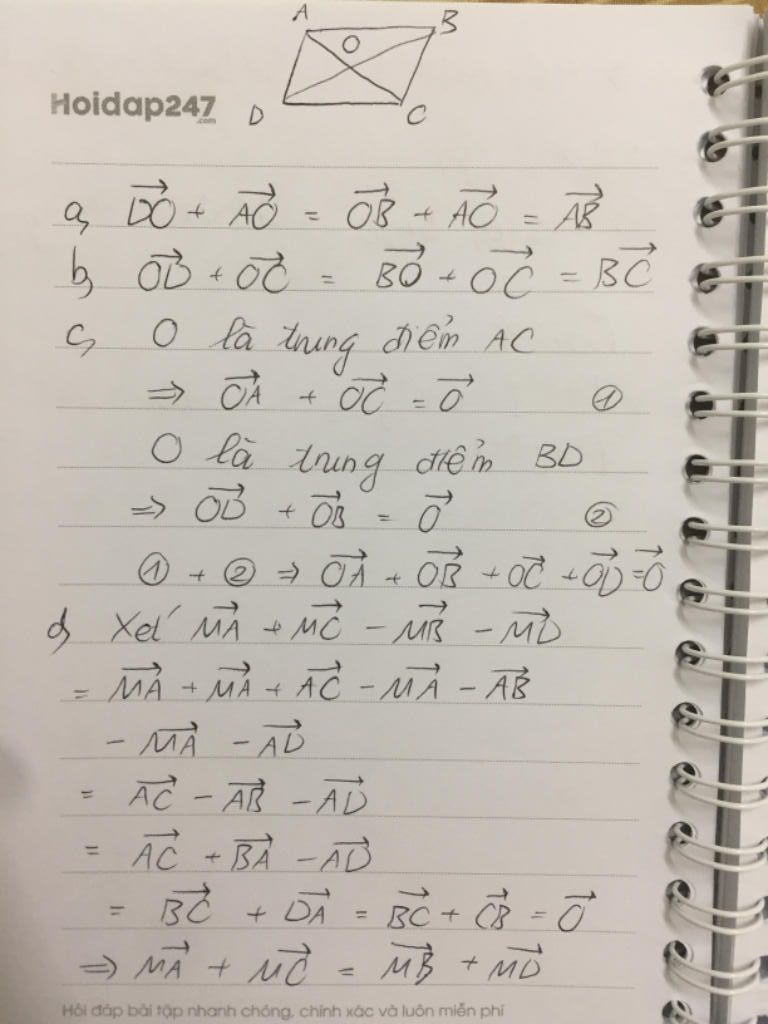 A
B
O
D
C
Hoidap247
.com
a, $\overrightarrow{DO} + \overrightarrow{AO} = \overrightarrow{OB} + \overrightarrow{AO} = \overrightarrow{AB}$
b, $\overrightarrow{OD} + \overrightarrow{OC} = \overrightarrow{BO} + \overrightarrow{OC} = \overrightarrow{BC}$
c, O là trung điểm AC
$\Rightarrow \overrightarrow{OA} + \overrightarrow{OC} = \overrightarrow{O}$ ①
O là trung điểm BD
$\Rightarrow \overrightarrow{OD} + \overrightarrow{OB} = \overrightarrow{O}$ ②
① + ② $\Rightarrow \overrightarrow{OA} + \overrightarrow{OB} + \overrightarrow{OC} + \overrightarrow{OD} = \overrightarrow{O}$
d, Xét $\overrightarrow{MA} + \overrightarrow{MC} - \overrightarrow{MB} - \overrightarrow{MD}$
$= \overrightarrow{MA} + \overrightarrow{MA} + \overrightarrow{AC} - \overrightarrow{MA} - \overrightarrow{AB}$
$- \overrightarrow{MA} - \overrightarrow{AD}$
$= \overrightarrow{AC} - \overrightarrow{AB} - \overrightarrow{AD}$
$= \overrightarrow{AC} + \overrightarrow{BA} - \overrightarrow{AD}$
$= \overrightarrow{BC} + \overrightarrow{DA} = \overrightarrow{BC} + \overrightarrow{CB} = \overrightarrow{O}$
$\Rightarrow \overrightarrow{MA} + \overrightarrow{MC} = \overrightarrow{MB} + \overrightarrow{MD}$
Hỏi đáp bài tập nhanh chóng, chính xác và luôn miễn phí